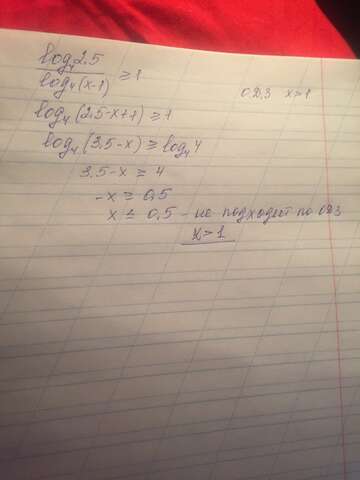 log₄2,5
log₄(x-1) ≥ 1
ОДЗ x>1
log₄(2,5-x+1) ≥ 1
log₄(3,5-x) ≥ log₄4
3,5-x ≥ 4
-x ≥ 0,5
x ≤ 0,5 - не подходет по ОДЗ
x>1